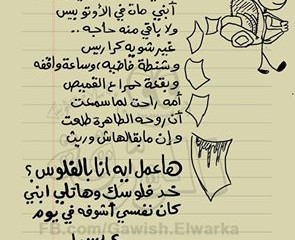 أبني مات في الأوتوبيس
ولا باقي منه حاجه ..
غير شوية كراريس
وشنطة فاضيه وساعة واقفه
وبقعة حمرا ع القميص
أمه راحت لما سمعت
أن روحه الطاهرة طلعت
وإن مابقالهاش وريث
هاعمل ايه انا بالفلوس؟
خد فلوسك وهاتلي ابني
كان نفسي أشوفه في يوم
FB.com/Gawish.Elwarka